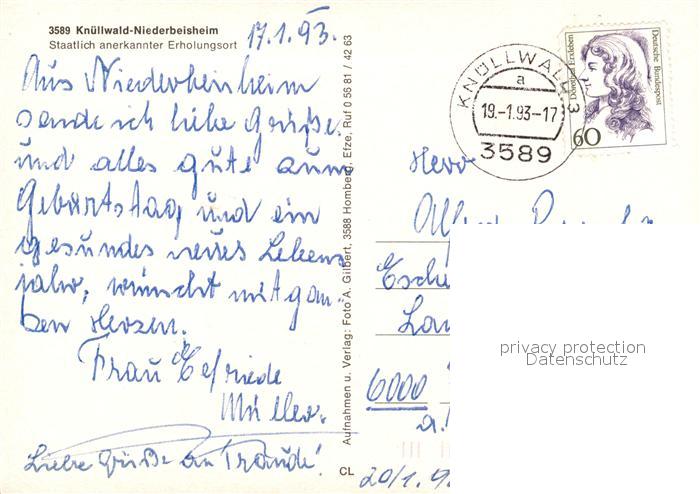 3589 Knüllwald-Niederbeisheim
Staatlich anerkannter Erholungsort
17.1.93.
Aus Niederbeisheim
sende ich liebe Grüße
und alles gute zum
Geburtstag und ein
gesundes neues Lebens
jahr, wünscht mit gan-
zen Herzen.
Frau Elfriede
Müller.
Liebe Grüße an Traude!
Aufnahmen u. Verlag: Foto A. Gilbert, 3588 Homberg, Efze, Ruf 0 56 81 / 42 63
CL
KNÜLLWALD 3
a
19.-1.93-17
3589
Dorothea Erxleben
Deutsche Bundespost
60
Herr
Alfred
Esch
Lan
6000
a.
20/1.9
privacy protection
Datenschutz